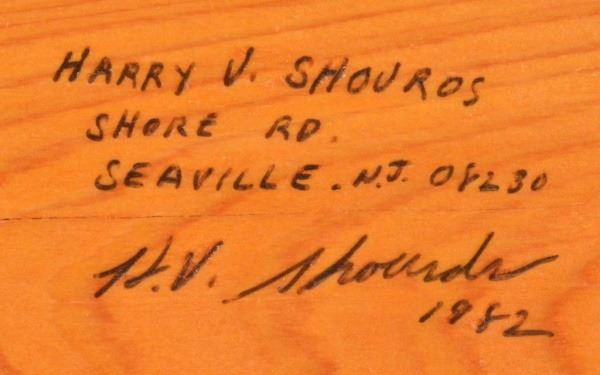 HARRY V. SHOURDS
SHORE RD.
SEAVILLE. N.J. 08230
H.V. Shourds
1982